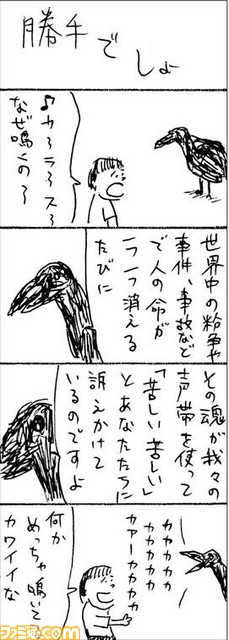 勝手でしょ
♪カ〜ラ〜ス〜
なぜ鳴くの〜
世界中の紛争や
事件、事故など
で人の命が
一つ一つ消える
たびに
その魂が我々の
声帯を使って
「苦しい苦しい」
とあなたたちに
訴えかけて
いるのですよ
カカカカカ
カカカカカ
カァーカカカカ
何か
めっちゃ鳴いて
カワイイな
ファミ通.com